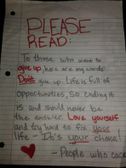 PLEASE
READ:
To those who want to
give up, here are my words:
Don't give up. Life is full of
opportunities, so ending it
is and should never be
the answer. Love yourself
and try hard to fix your
life. Do's your choice!
- People who care